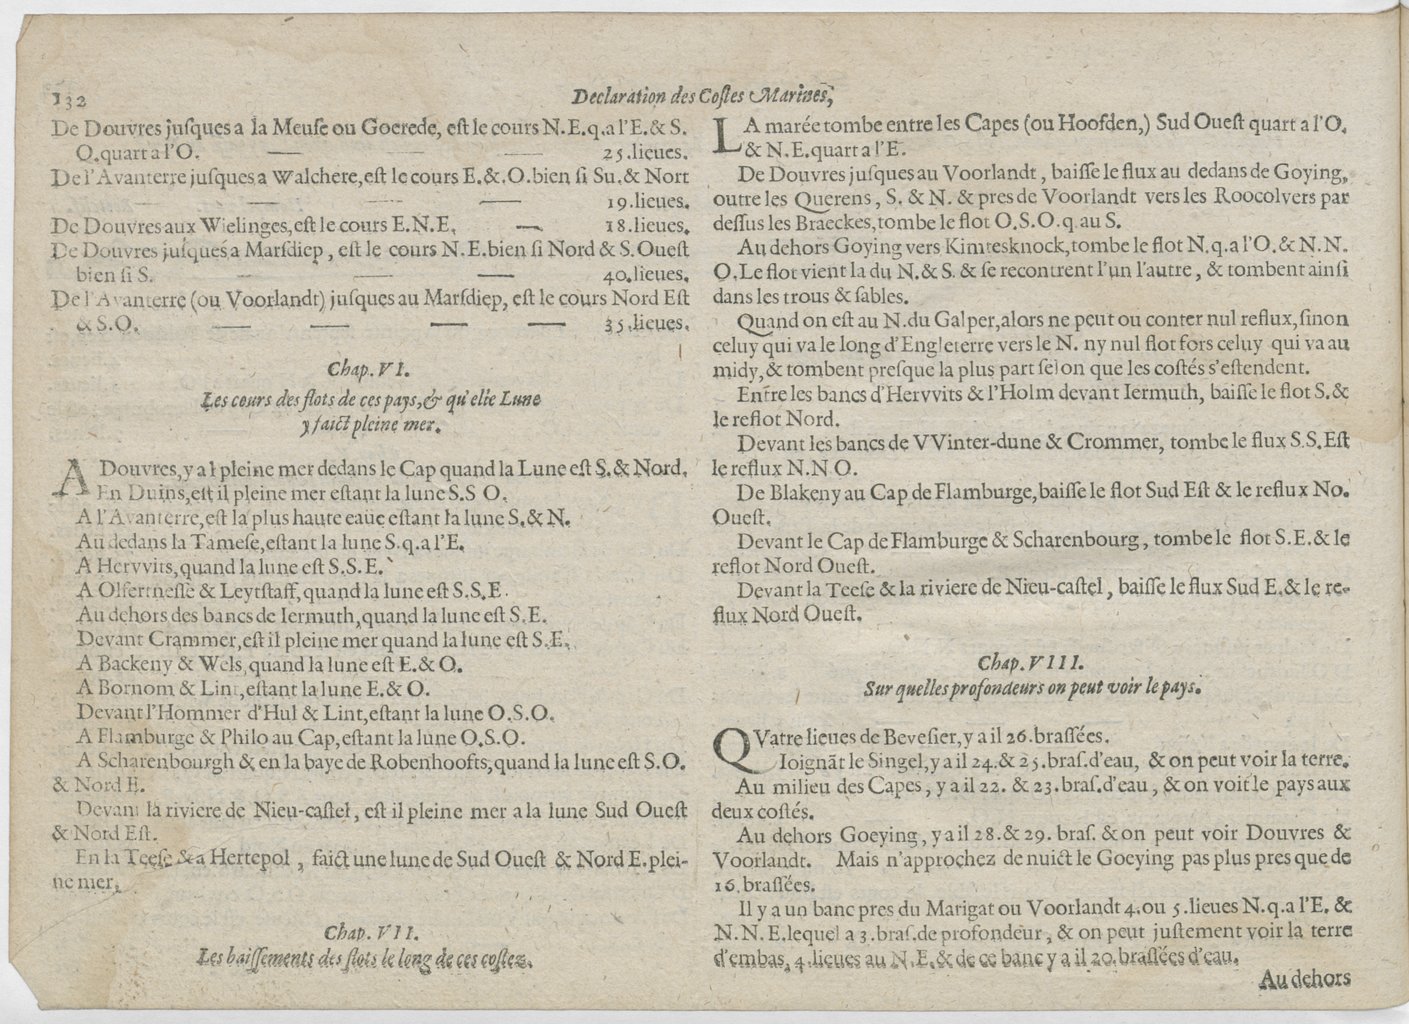 132
Declaration des Costes Marines,
De Douvres jusques a la Meuse ou Goerede, est le cours N.E.q.a l'E.& S.
O.quart a l'O. — — — 25.lieues.
De l'Avanterre jusques a Walchere,est le cours E.&.O.bien si Su.& Nort
— — — — 19.lieues.
De Douvres aux Wielinges,est le cours E.N.E. — 18.lieues.
De Douvres jusques a Marsdiep, est le cours N.E.bien si Nord & S.Ouest
bien si S. — — — 40.lieues.
De l'Avanterre (ou Voorlandt) jusques au Marsdiep, est le cours Nord Est
& S.O. — — — — 35.lieues.
Chap. VI.
Les cours des flots de ces pays,& qu'elle Lune
y faict pleine mer.
A Douvres,y a l pleine mer dedans le Cap quand la Lune est S.& Nord.
En Duins,est il pleine mer estant la lune S.S O.
A l'Avanterre,est la plus haute eaue estant la lune S.& N.
Au dedans la Tamese,estant la lune S.q.a l'E.
A Hervvits,quand la lune est S.S.E.
A Olfertnesse & Leytstaff,quand la lune est S.S.E.
Au dehors des bancs de Iermuth,quand la lune est S.E.
Devant Crammer,est il pleine mer quand la lune est S.E.
A Backeny & Wels,quand la lune est E.& O.
A Bornom & Lint,estant la lune E.& O.
Devant l'Hommer d'Hul & Lint,estant la lune O.S.O.
A Flamburge & Philo au Cap,estant la lune O.S.O.
A Scharenbourgh & en la baye de Robenhoofts,quand la lune est S.O.
& Nord E.
Devant la riviere de Nieu-castel, est il pleine mer a la lune Sud Ouest
& Nord Est.
En la Teese & a Hertepol, faict une lune de Sud Ouest & Nord E.plei-
ne mer.
Chap. VII.
Les baissements des flots le long de ces costez.
LA marée tombe entre les Capes (ou Hoofden,) Sud Ouest quart a l'O.
& N.E.quart a l'E.
De Douvres jusques au Voorlandt, baisse le flux au dedans de Goying,
outre les Querens, S. & N. & pres de Voorlandt vers les Roocolvers par
dessus les Braeckes,tombe le flot O.S.O.q.au S.
Au dehors Goying vers Kimtesknock,tombe le flot N.q.a l'O.& N.N.
O.Le flot vient la du N.& S. & se recontrent l'un l'autre, & tombent ainsi
dans les trous & sables.
Quand on est au N.du Galper,alors ne peut ou conter nul reflux,sinon
celuy qui va le long d'Engleterre vers le N. ny nul flot fors celuy qui va au
midy,& tombent presque la plus part selon que les costés s'estendent.
Entre les bancs d'Hervvits & l'Holm devant Iermuth, baisse le flot S.&
le reflot Nord.
Devant les bancs de VVinter-dune & Crommer, tombe le flux S.S.Est
le reflux N.N O.
De Blakeny au Cap de Flamburge,baisse le flot Sud Est & le reflux No.
Ouest.
Devant le Cap de Flamburge & Scharenbourg, tombe le flot S.E.& le
reflot Nord Ouest.
Devant la Teese & la riviere de Nieu-castel, baisse le flux Sud E.& le re-
flux Nord Ouest.
Chap. VIII.
Sur quelles profondeurs on peut voir le pays.
QVatre lieues de Bevesier,y a il 26.brassées.
Ioignãt le Singel,y a il 24.& 25.bras.d'eau, & on peut voir la terre.
Au milieu des Capes, y a il 22. & 23.bras.d'eau, & on voit le pays aux
deux costés.
Au dehors Goeying, y a il 28.& 29. bras. & on peut voir Douvres &
Voorlandt. Mais n'approchez de nuict le Goeying pas plus pres que de
16.brassées.
Il y a un banc pres du Marigat ou Voorlandt 4.ou 5.lieues N.q.a l'E. &
N.N.E.lequel a 3.bras.de profondeur, & on peut justement voir la terre
d'embas, 4.lieues au N.E.& de ce banc y a il 20.brassées d'eau.
Au dehors